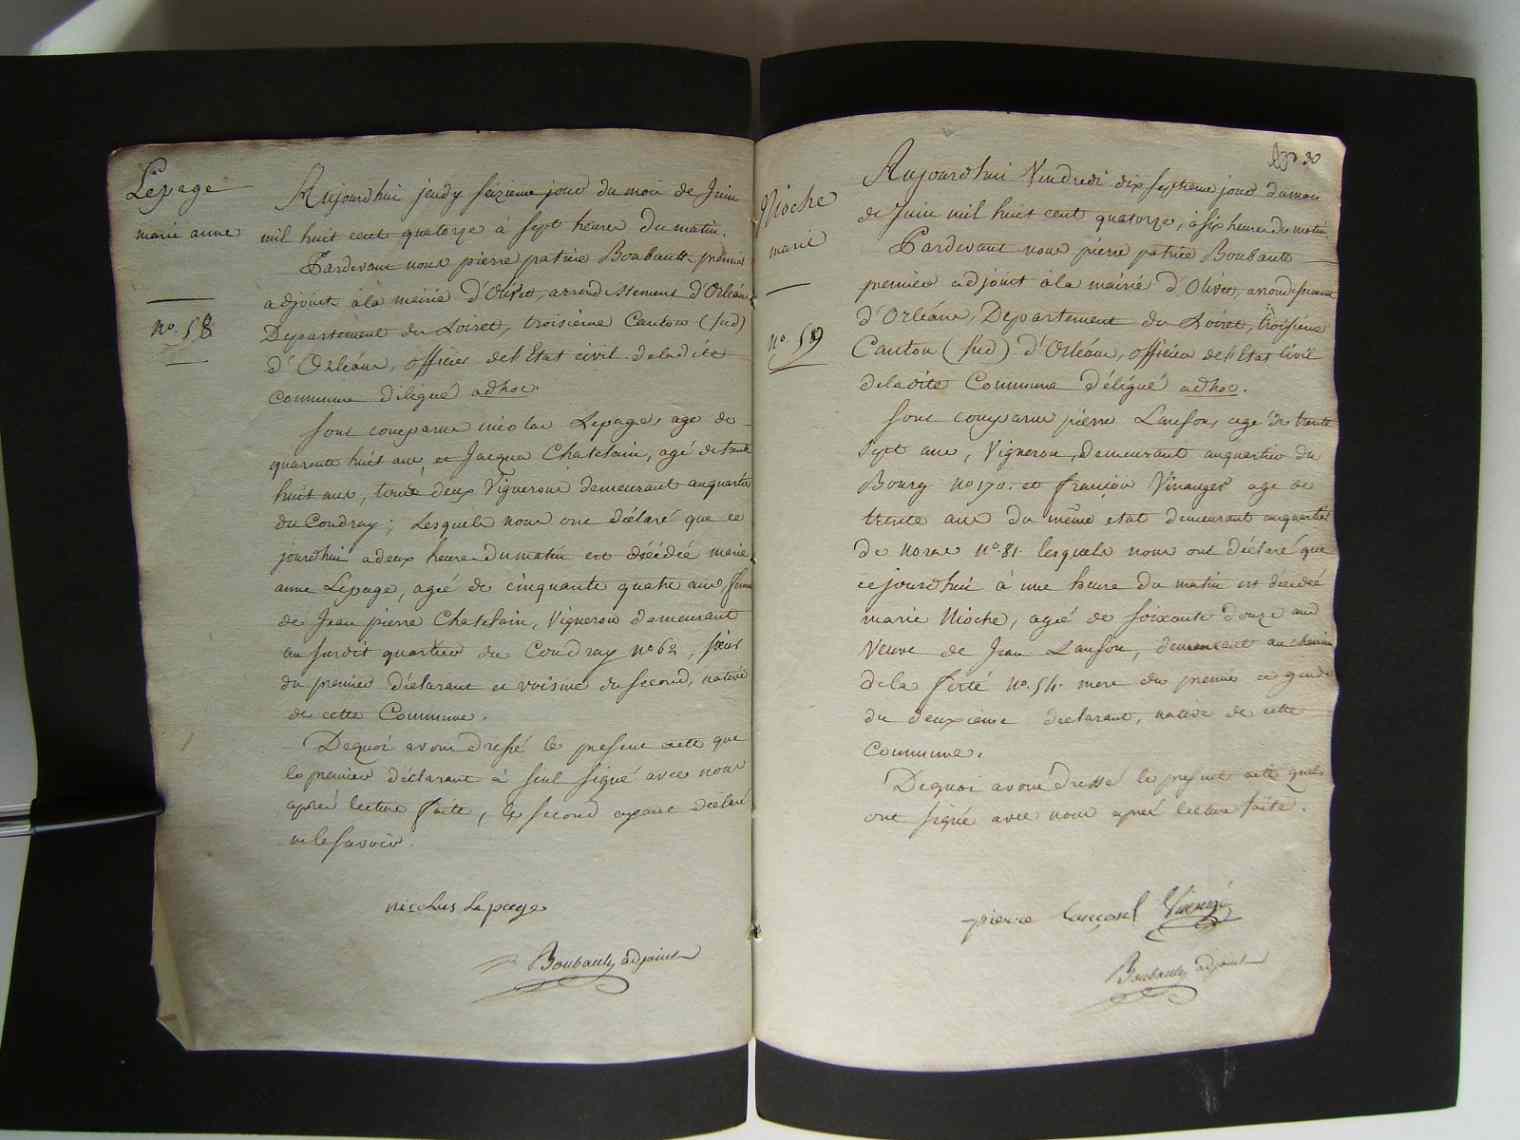 Lepage
marie anne
no. 58
Aujourdhui jeudy seizieme jour du mois de Juin
mil huit cent quatorze à sept heure du matin.
Pardevant nous pierre patrice Boubault premier
adjoint à la mairie d'Olivet, arrondissement d'Orléans
Departement du Loiret, troisieme Canton (sud)
d'Orléans, officier de l'Etat civil de ladite
Commune délégué adhoc
sont comparus nicolas Lepage, agé de
quarante huit ans, et Jacques Chatelain, agé de trente
huit ans, tous deux Vignerons demeurant au quartier
du Coudray; Lesquels nous ont déclaré que ce
jourdhui a deux heures du matin est décédée marie
anne Lepage, agée de cinquante quatre ans femme
de Jean pierre Chatelain, Vigneron demeurant
au surdit quartier du Coudray no 62, sœur
du premier déclarant et voisine du second, native
de cette Commune.
Dequoi avons dressé le present acte que
le premier déclarant à seul signé avec nous
après lecture faite, le second ayant déclaré
ne le savoir.
nicolas Lepage
Boubault adjoint
30
Nioche
marie
no. 59
Aujourdhui Vendredi dix septieme jour du mois
de Juin mil huit cent quatorze, à six heures du matin
Pardevant nous pierre patrice Boubault
premier adjoint à la mairie d'Olivet, arrondissement
d'Orléans, Departement du Loiret, troisieme
Canton (sud) d'Orléans, officier de l'Etat Civil
de ladite Commune délégué adhoc.
sont comparus pierre Lanson, agé de trente
sept ans, Vigneron, demeurant au quartier du
Bourg no 170. et françois Vinauger agé de
trente ans du même etat demeurant au quartier
de no 81. lesquels nous ont déclaré que
ce jourdhui à une heure du matin est décédée
marie Nioche, agée de soixante douze ans
Veuve de Jean Lanson, demeurant au chemin
de la ferté no. 54. mere du premier et
du deuxieme declarant, native de cette
Commune.
Dequoi avons dressé le present acte qu'ils
ont signé avec nous après lecture faite.
pierre
Boubault adjoint